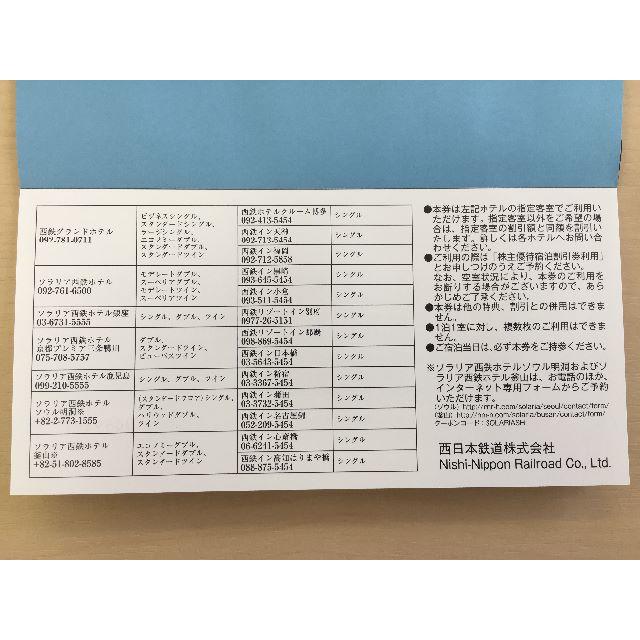 西鉄グランドホテル
092-781-0711
ビジネスシングル、
スタンダードシングル、
ラージシングル、
エコノミーダブル、
スタンダードダブル、
スタンダードツイン
ソラリア西鉄ホテル
092-761-6500
モデレートダブル、
スーペリアダブル、
モデレートツイン、
スーペリアツイン
ソラリア西鉄ホテル銀座
03-6731-5555
シングル、ダブル、ツイン
ソラリア西鉄ホテル
京都プレミア三条鴨川
075-708-5757
ダブル、
スタンダードツイン、
ビューバスツイン
ソラリア西鉄ホテル鹿児島
099-210-5555
シングル、ダブル、ツイン
ソラリア西鉄ホテル
ソウル明洞※
+82-2-773-1555
(スタンダードフロア)シングル、
ダブル、
ハリウッドダブル、
ツイン
ソラリア西鉄ホテル
釜山※
+82-51-802-8585
エコノミーダブル、
スタンダードダブル、
スタンダードツイン
西鉄ホテルクルーム博多
092-413-5454
シングル
西鉄イン天神
092-713-5454
シングル
西鉄イン福岡
092-712-5858
シングル
西鉄イン黒崎
093-645-5454
シングル
西鉄イン小倉
093-511-5454
シングル
西鉄リゾートイン別府
0977-26-5151
シングル
西鉄リゾートイン那覇
098-869-5454
シングル
西鉄イン日本橋
03-5643-5454
シングル
西鉄イン新宿
03-3367-5454
シングル
西鉄イン蒲田
03-3732-5454
シングル
西鉄イン名古屋錦
052-209-5454
シングル
西鉄イン心斎橋
06-6241-5454
シングル
西鉄イン高知はりまや橋
088-875-5454
シングル
●本券は左記ホテルの指定客室でご利用い
ただけます。指定客室以外をご希望の場
合は、指定客室の割引額と同額を割引い
たします。詳しくは各ホテルへお問い合
わせください。
●ご利用の際は「株主優待宿泊割引券利用」
とお申しつけのうえご予約ください。
なお、空室状況により、本券のご利用を
お断りする場合がございますので、あら
かじめご了承ください。
●本券は他の特典、割引との併用はできま
せん。
●1泊1室に対し、複数枚のご利用はできま
せん。
●ご宿泊当日は、必ず本券をご持参ください。
※ソラリア西鉄ホテルソウル明洞およびソ
ラリア西鉄ホテル釜山は、お電話のほか、
インターネット専用フォームからご予約
いただけます。
(ソウル) http://nnr-h.com/solaria/seoul/contact/form/
(釜山) http://nnr-h.com/solaria/busan/contact/form/
クーポンコード：SOLARIASH
西日本鉄道株式会社
Nishi-Nippon Railroad Co., Ltd.